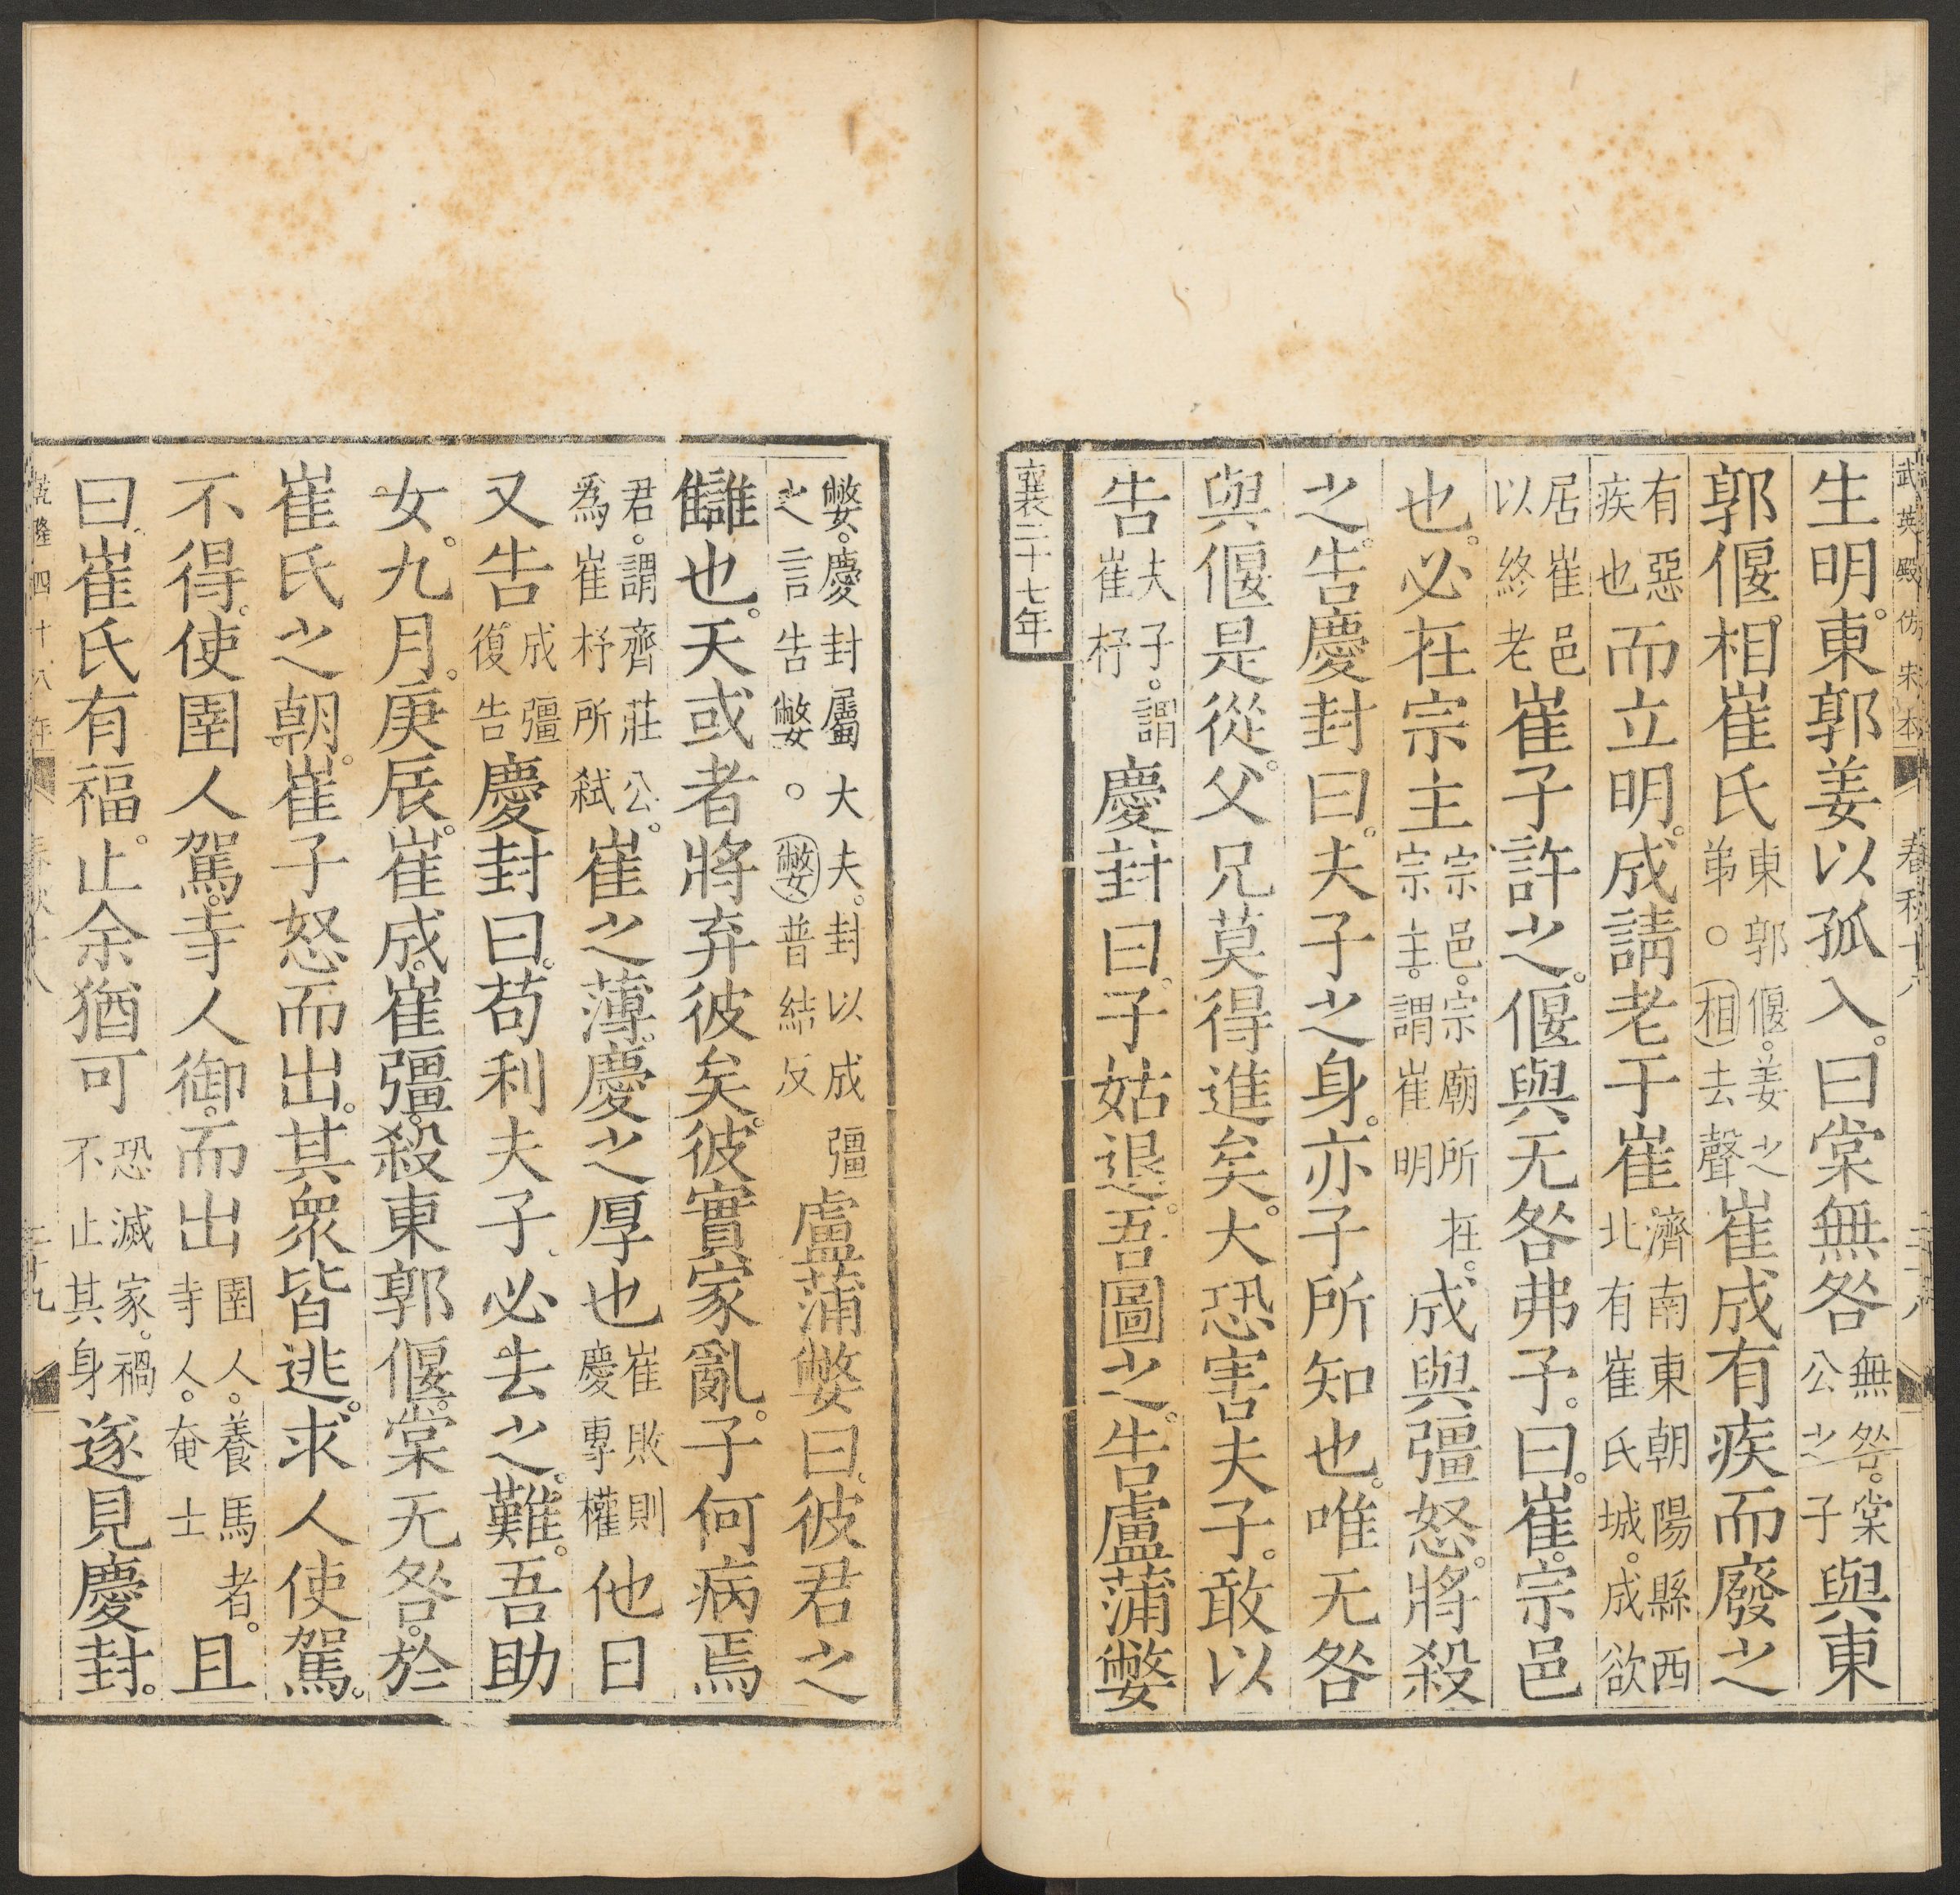 武英殿仿宋本 春秋十八 二十八
生明。東郭姜以孤入。曰棠無咎無咎。棠公之子與東
郭偃。相崔氏東郭偃。姜之弟。○相去聲崔成有疾而廢之
有惡疾也而立明。成請老于崔濟南東朝陽縣西北有崔氏城。成欲
居崔邑以終老崔子許之。偃與无咎弗予。曰。崔。宗邑
也。必在宗主宗邑。宗廟所在。宗主。謂崔明成與彊怒。將殺
之。告慶封曰。夫子之身。亦子所知也。唯无咎
與偃是從。父兄莫得進矣。大恐害夫子。敢以
告夫子。謂崔杼慶封曰。子姑退。吾圖之。告盧蒲嫳
襄二十七年
嫳。慶封屬大夫。封以成彊之言告嫳。○嫳普結反盧蒲嫳曰。彼君之
讎也。天或者將弃彼矣。彼實家亂。子何病焉
君。謂齊莊公。爲崔杼所弒崔之薄。慶之厚也崔敗則慶專權他日
又告成彊復告慶封曰。苟利夫子。必去之。難。吾助
女。九月。庚辰。崔成。崔彊。殺東郭偃。棠无咎。於
崔氏之朝。崔子怒而出。其衆皆逃。求人使駕。
不得。使圉人駕。寺人御。而出圉人。養馬者。寺人。奄士且
曰。崔氏有福。止余猶可恐滅家。禍不止其身遂見慶封。
乾隆四十八年 春秋十八 二十九